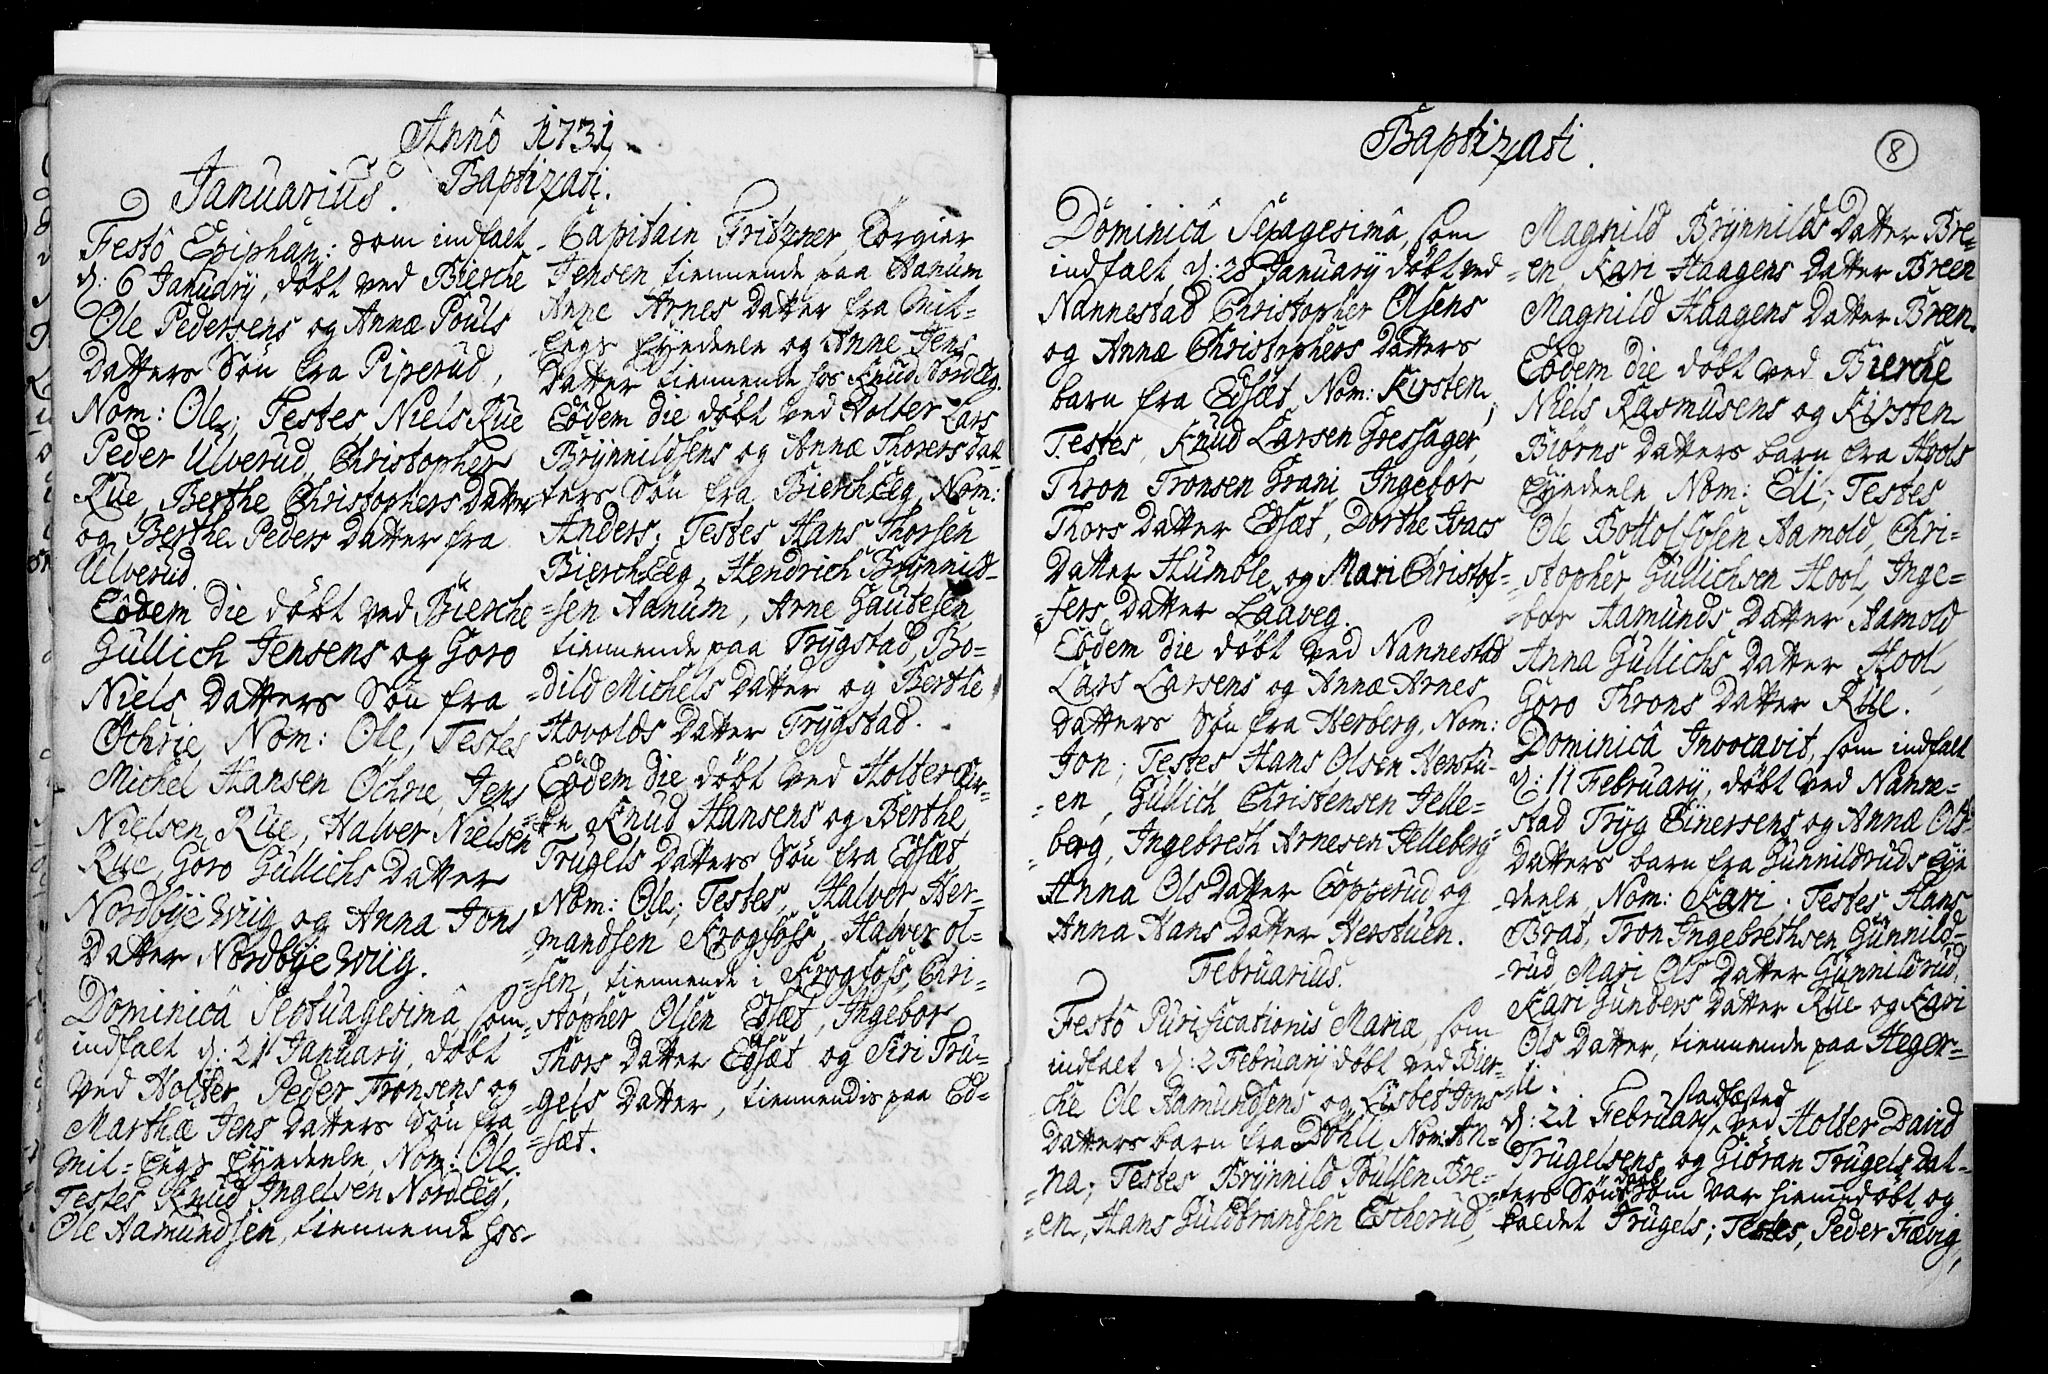 Annô 1731.
Januarius. Baptizati.
Festô Epiphan: som indfalt
d: 6 January, döbt ved Bierche
Ole Pedersens og Annæ Pouls
Datters Sön fra Piperud,
Nom: Ole; Testes Niels Rüe
Peder Ulverud, Christopher
Rüe, Berthe Christophers Datter
og Berthe Peders Datter fra
Ulverud.
Eôdem die döbt ved Bierche
Güllich Jensens og Goro
Niels Datters Sön fra
Öchrie Nom: Ole, Testes
Michel Hansen Öchrie, Jens
Nielsen Rüe, Halver Nielsen
Rüe, Goro Güllichs Datter
Nordbÿe Wiig og Anna Jons
Datter Nordbÿe Wiig.
Dominicâ Septuagesimâ, som
indfalt d: 21 January, döbt
ved Holter Peder Tronsens og
Marthæ Jens Datters Sön fra
Mil-Eegs Eÿedeele, Nom: Ole.
Testes Knud Ingelsen NordEeg,
Ole Aamundsen, tiennende hos
Capitain Fritzner, Torgier
Jensen, tiennende paa Aanum
Anne Arnes Datter fra Mil-
Eegs Eÿedeele og Anne Jens
Datter tiennende hos Knud NordEeg.
Eôdem die döbt ved Holter Lars
Brÿnnildsens og Annæ Thorers Dat-
ters Sön fra BierchEeg, Nom:
Anders; Testes Hans Thorsen
BierchEeg, Hendrich Brÿnnild-
=sen Aanum, Arne Gaudesen,
tiennende paa Trÿgstad, Bo-
=dild Michels Datter og Berthe
Hovolds Datter Trÿgstad.
Eôdem die, döbt ved Holter Kir-
=ke Knud Hansens og Berthe
Trügels Datters Sön fra Edsæt
Nom: Ole; Testes, Halvor Her-
mandsen Krogfoss, Halver Ol-
=sen, tiennende i Krogfoss, Chri-
=stopher Olsen Edsæt, Ingebor
Thors Datter Edsæt og Siri Trü-
=gels Datter, tiennendis paa Ed-
=sæt.
Baptizati.
8
Dominicâ Sexagesimâ, som
indfalt, d: 28 January döbt ved
Nannestad Christopher Olsens
og Annæ Christophers Datters
barn fra Edsæt Nom: Kirsten,
Testes, Knud Larsen Gressager,
Thron Tronsen Grani, Ingebor
Thors Datter Edsæt, Dorthe Ivars
Datter Humble og Mari Christof-
=fers Datter Laaveg.
Eôdem die döbt ved Nannestad
Lars Larsens og Annæ Arnes
Datters Sön fra Herberg, Nom:
Jon; Testes Hans Olsen Herstu-
=en, Güllich Christensen Jelle-
=berg, Ingebreth Arnesen Jelleberg
Anna Ols Datter Copperud og
Anna Hans Datter Herstüen.
Februarius.
Festô Purificationis Mariæ, som
indfalt d: 2 February döbt ved Bier-
che Ole Aamundsens og Lisbet Jons
Datters barn fra Döhli Nom: An-
=na; Testes Brÿnnild Poulsen Bre-
=en, Hans Guldbrandsen Escherud,
Magnild Brÿnnilds Datter Bre-
=en, Kari Haagens Datter Breen
Magnild Haagens Datter Breen.
Eôdem die döbt ved Bierche
Niels Rasmusens og Kirsten
Biörns Datters barn fra Hools
Eÿedeele Nom: Eli; Testes
Ole Bottolfsen Aamold, Chri-
=stopher Güllichsen Hool, Inge-
=bor Aamunds Datter Aamold
Anna Güllichs Datter Hool,
Goro Throns Datter Rüe.
Dominicâ Invocavit, som indfalt
d: 11 February, döbt ved Nanne-
stad Trÿg Einersens og Annæ Ols
Datters barn fra Gunnildruds Eÿe
deele, Nom: Kari. Testes Hans
Brat, Tron Ingebrethsen Günnild-
=rud, Mari Ols Datter Günnildrud,
Kari Gunders Datter Rüe og Kari
Ols Datter, tiennende paa Heger-
=li.
stadfæsted
d: 21 February ved Holter David
Trügelsens og Giöran Trügels Dat-
=ters Söns daab som var hiemedöbt og
kaldet Trügels; Testes, Peder Fævig,